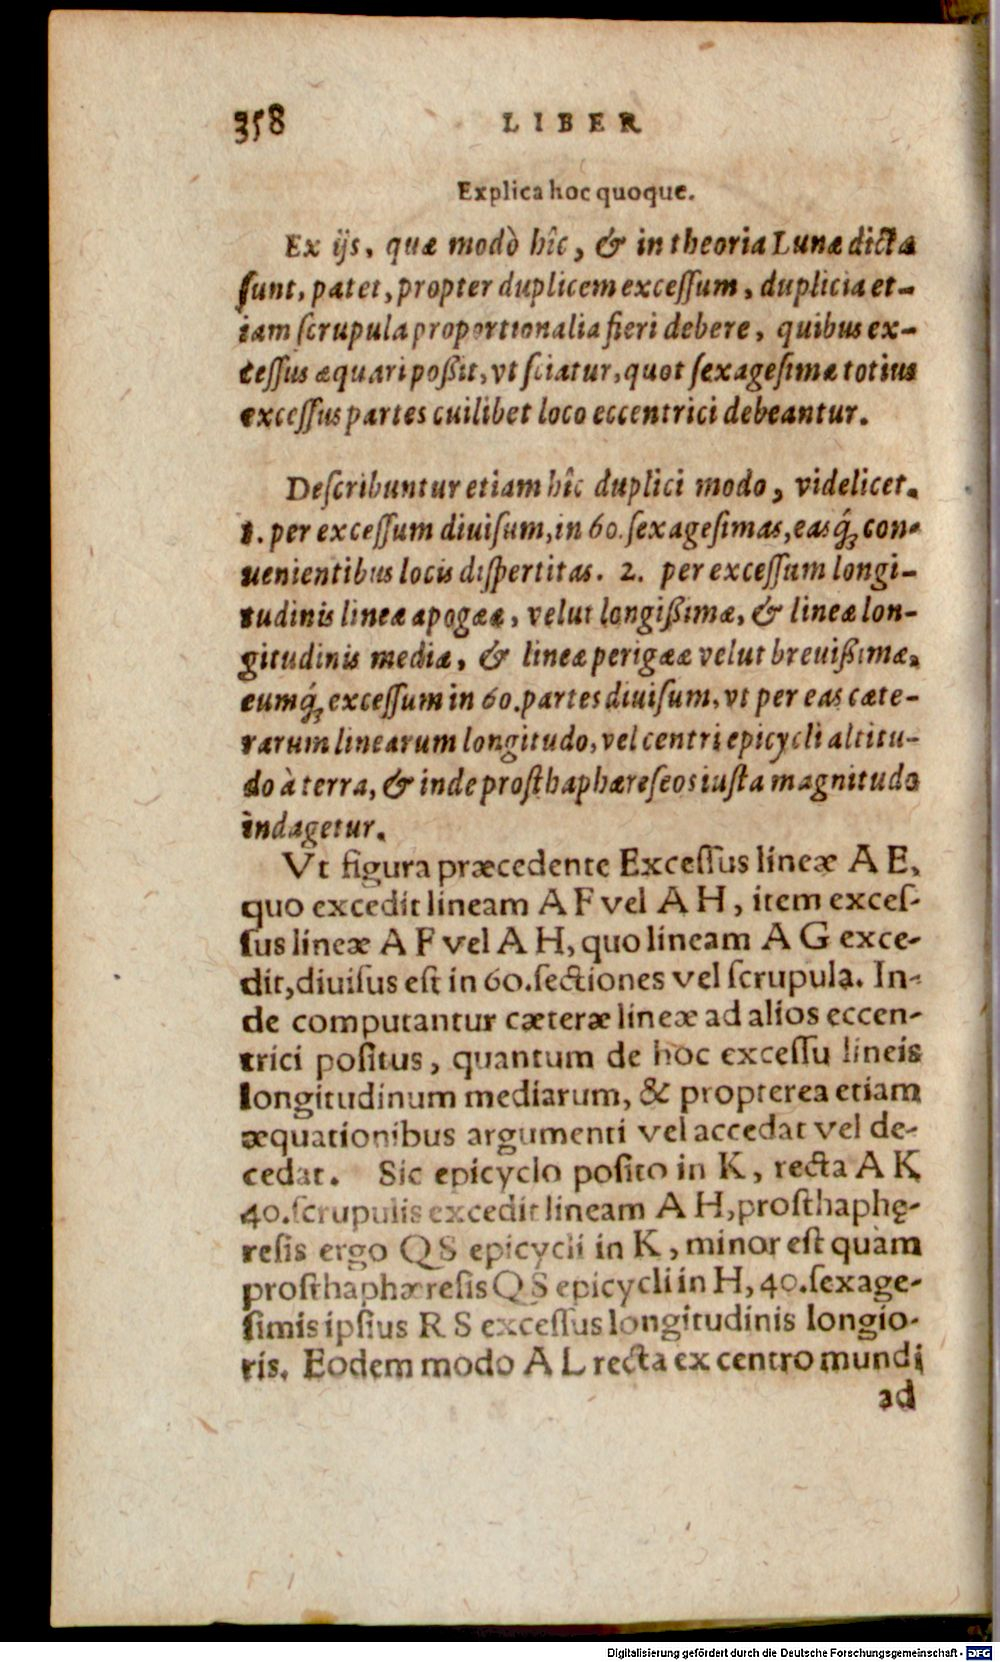 358 LIBER
Explica hoc quoque.
Ex ijs, quæ modò hîc, & in theoria Lunæ dicta
ſunt, patet, propter duplicem exceſſum, duplicia et-
iam ſcrupula proportionalia fieri debere, quibus ex-
ceſſus æquari poßit, vt ſciatur, quot ſexageſimæ totius
exceſſus partes cuilibet loco eccentrici debeantur.
Deſcribuntur etiam hîc duplici modo, videlicet.
1. per exceſſum diuiſum, in 60. ſexageſimas, easq́; con-
uenientibus locis diſpertitas. 2. per exceſſum longi-
tudinis lineæ apogææ, velut longißimæ, & lineæ lon-
gitudinis mediæ, & lineæ perigææ velut breuißimæ,
eumq́; exceſſum in 60. partes diuiſum, vt per eas cæte-
rarum linearum longitudo, vel centri epicycli altitu-
do à terra, & inde proſthaphæreſeos iuſta magnitudo
indagetur.
Vt figura præcedente Exceſſus lineæ A E,
quo excedit lineam A F vel A H, item exceſ-
ſus lineæ A F vel A H, quo lineam A G exce-
dit, diuiſus eſt in 60. ſectiones vel ſcrupula. In-
de computantur cæteræ lineæ ad alios eccen-
trici poſitus, quantum de hoc exceſſu lineis
longitudinum mediarum, & propterea etiam
æquationibus argumenti vel accedat vel de-
cedat. Sic epicyclo poſito in K, recta A K
40. ſcrupulis excedit lineam A H, proſthaphę-
reſis ergo Q S epicycli in K, minor eſt quàm
proſthaphæreſis Q S epicycli in H, 40. ſexage-
ſimis ipſius R S exceſſus longitudinis longio-
ris. Eodem modo A L recta ex centro mundi
ad
Digitalisierung gefördert durch die Deutsche Forschungsgemeinschaft - DFG